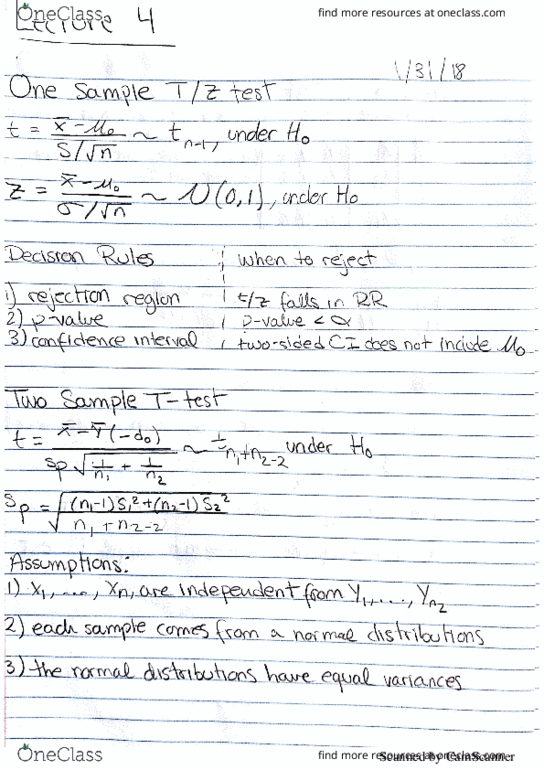 OneClass
find more resources at oneclass.com
Lecture 4
1/31/18
One Sample T/Z test
t = x̄-μ₀ / S/√n ~ t n-1, under H₀
z = x̄-μ₀ / σ/√n ~ N(0,1), under H₀
Decision Rules | when to reject
1) rejection region | t/z falls in RR
2) p-value | p-value < α
3) confidence interval | two-sided CI does not include μ₀
Two Sample T-test
t = x̄-Ȳ(-d₀) / Sp √(1/n₁ + 1/n₂) ~ t n₁+n₂-2 under H₀
Sp = √((n₁-1)S₁²+(n₂-1)S₂² / n₁+n₂-2)
Assumptions:
1) X₁, ...., Xn₁ are independent from Y₁,...., Yn₂
2) each sample comes from a normal distributions
3) the normal distributions have equal variances
OneClass
find more resources at oneclass.com
Scanned by CamScanner